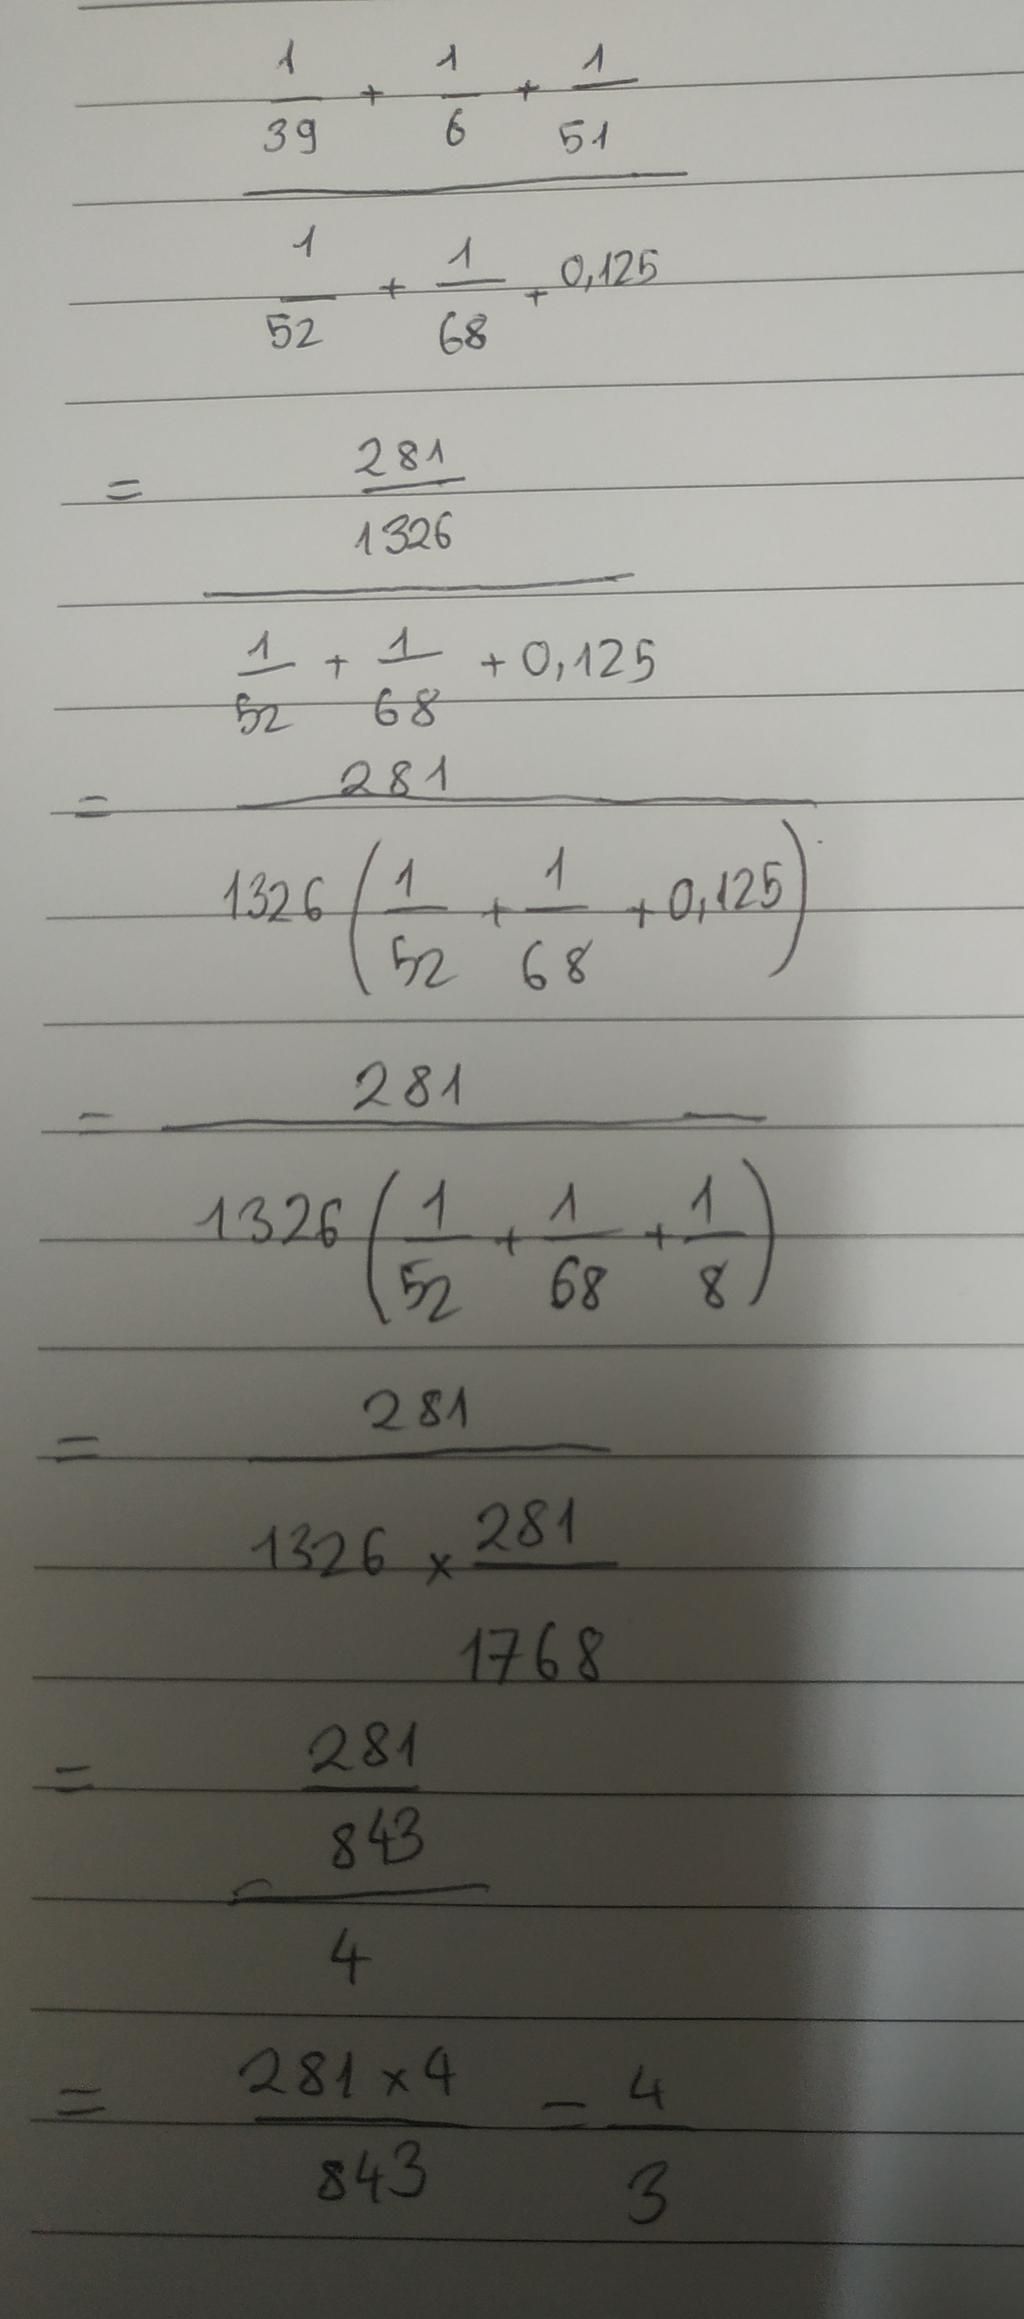 1/39 + 1/6 + 1/51
1/52 + 1/68 + 0,125
= 281/1326
1/52 + 1/68 + 0,125
= 281
1326 (1/52 + 1/68 + 0,125)
= 281
1326 (1/52 + 1/68 + 1/8)
= 281
1326 × 281/1768
= 281
843
4
= 281 × 4/843 = 4/3